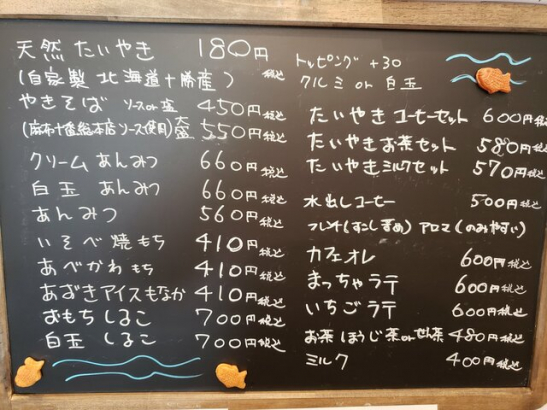 天然 たいやき 180円 税込
(自家製 北海道十勝産)
やきそば ソースor塩 450円税込
(麻布十番総本店ソース使用)大盛 550円税込
クリームあんみつ 660円税込
白玉 あんみつ 660円税込
あんみつ 560円税込
いそべ焼もち 410円税込
あべかわもち 410円税込
あずきアイスもなか 410円税込
おもちしるこ 700円税込
白玉 しるこ 700円税込
トッピング +30
クルミ or 白玉
たいやきコーヒーセット 600円税込
たいやきお茶セット 580円税込
たいやきミルクセット 570円税込
水出しコーヒー 500円税込
フレンチ(すこし苦め) アロマ(のみやすい)
カフェオレ 600円税込
まっちゃラテ 600円税込
いちごラテ 600円税込
お茶 ほうじ茶orせん茶 480円税込
ミルク 400円税込